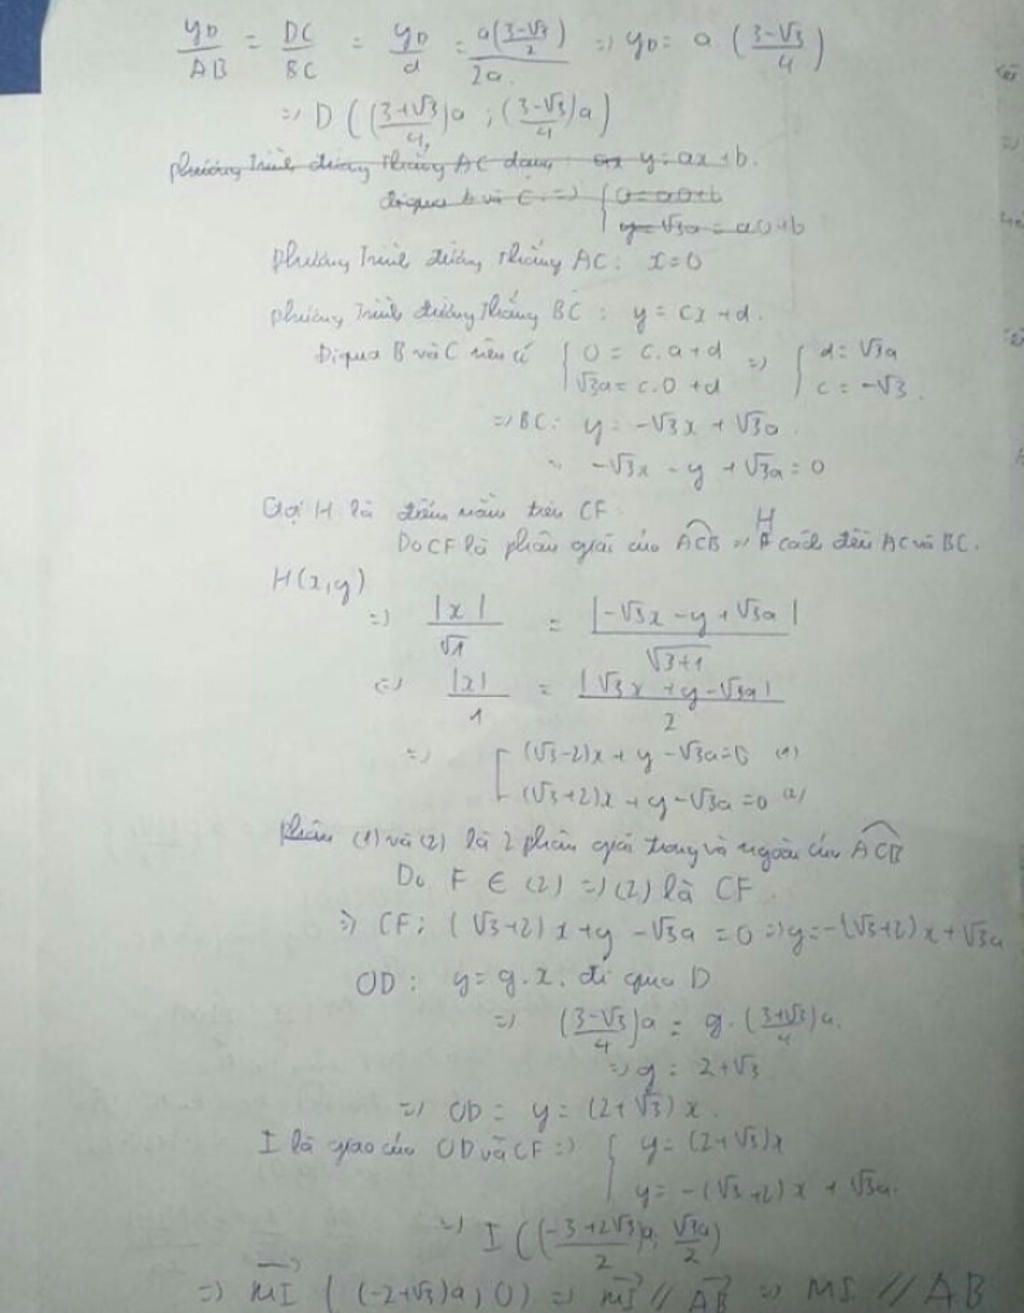 yD/AB = DC/BC = yD/a = a((3-√3)/2)/2a. => yD = a ((3-√3)/4)
=> D (((3+√3)/4)a ; ((3-√3)/4)a)
phương trình đường thẳng AC dạng: ax y = ax + b.
đi qua A và C => { 0 = a0 + b
y = √3a = a0 + b
phương trình đường thẳng AC: x = 0
phương trình đường thẳng BC: y = cx + d.
Đi qua B và C nên có { 0 = c.a + d => { d = √3a
√3a = c.0 + d c = -√3.
=> BC: y = -√3x + √3a.
-√3x - y + √3a = 0
Gọi H là điểm nằm trên CF.
Do CF là phân giác của ACB => H cách đều AC và BC.
H(x,y)
=> |x|/√1 = |-√3x - y + √3a|/√3+1
<=> |x|/1 = |√3x + y - √3a|/2
=> [ (√3-2)x + y - √3a = 0 (1)
(√3+2)x + y - √3a = 0 (2)
(1) và (2) là 2 phân giác trong và ngoài của ACB
Do F ∈ (2) => (2) là CF.
=> CF: (√3+2)x + y - √3a = 0 => y = -(√3+2)x + √3a
OD: y = g.x. đi qua D
=> ((3-√3)/4)a = g.((3+√3)/4)a.
=> g = 2+√3
=> OD = y = (2+√3)x.
I là giao của OD và CF => { y = (2+√3)x
y = -(√3+2)x + √3a.
=> I (((-3+2√3)/2)a; √3a/2)
=> MI ((-2+√3)a; 0) => MI // AB => MI // AB